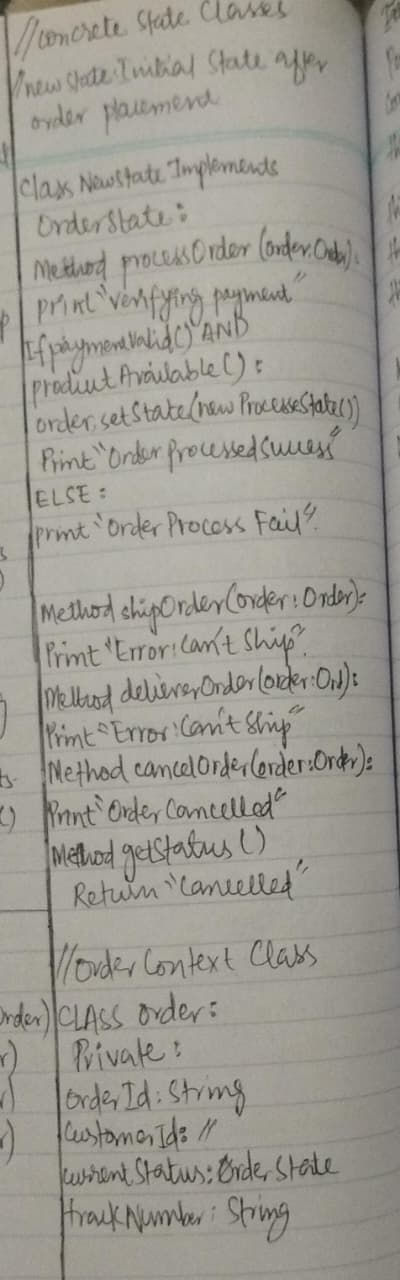 //concrete State Classes
//new state: Initial State after
order placement
Class NewState Implements
OrderState:
Method processOrder (order:Order):
print "verifying payment"
If paymentValid() AND
productAvailable():
order.setState(new ProcesseState())
Print "Order Processed Success"
ELSE:
print "Order Process Fail".
Method shipOrder(order: Order):
Print "Error: Can't Ship".
Method delieverOrder(order:Ord):
Print "Error: Can't Ship"
Method cancelOrder(order:Order):
Print "Order Cancelled"
Method getStatus ()
Return "Cancelled"
//Order Context Class
CLASS order:
Private:
orderId: String
CustomerId: //
currentStatus: Order State
trackNumber: String